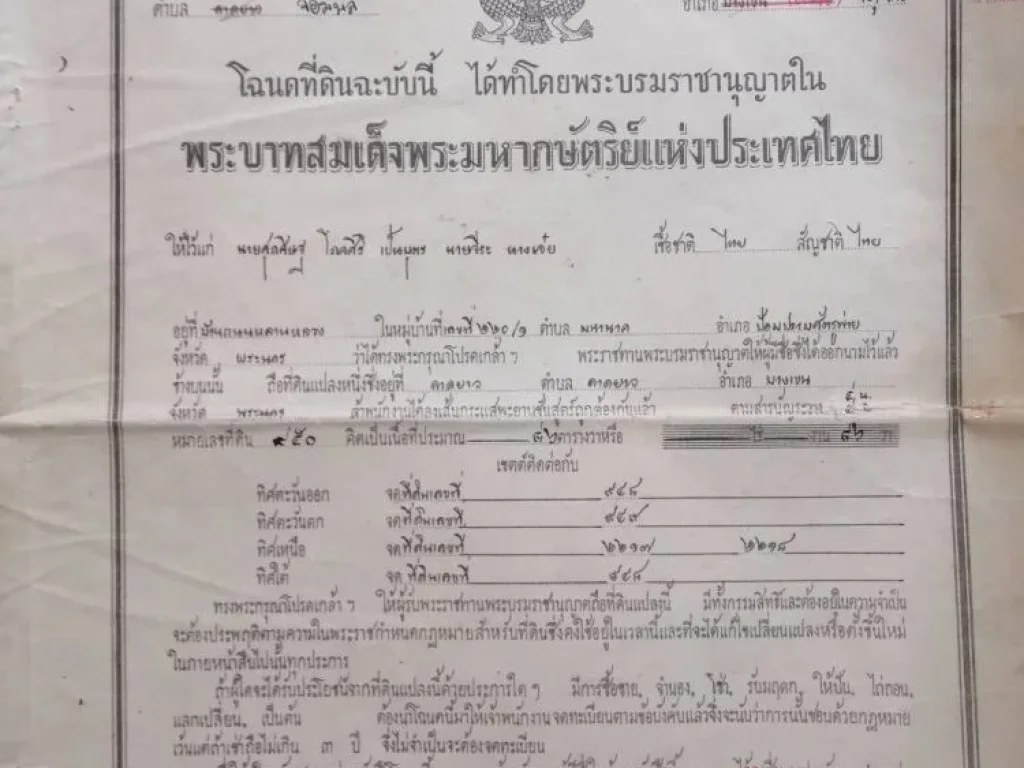 ตำบล ลาดยาว จอมพล อำเภอ บางเขน
โฉนดที่ดินฉะบับนี้ ได้ทำโดยพระบรมราชานุญาตใน
พระบาทสมเด็จพระมหากษัตริย์แห่งประเทศไทย
ให้ไว้แก่ นาย โกลศิริ เป็นบุตร นายวีระ เชื้อชาติ ไทย สัญชาติ ไทย
อยู่ที่ ถนนหลานหลวง ในหมู่บ้านที่เลขที่ ๒๒๐/๑ ตำบล มหานาค อำเภอ ป้อมปราบศัตรูพ่าย
จังหวัด พระนคร ว่าได้ทรงพระกรุณาโปรดเกล้า ฯ พระราชทานพระบรมราชานุญาตให้ผู้มีชื่อซึ่งได้ออกนามไว้แล้ว
ข้างบนนั้น ถือที่ดินแปลงหนึ่งซึ่งอยู่ที่ ลาดยาว ตำบล ลาดยาว อำเภอ บางเขน
จังหวัด พระนคร เจ้าพนักงานได้ลงเส้นกระแสพะยานชันสูตร์ถูกต้องกันแล้ว ตามสารบัญระวาง
หมายเลขที่ดิน ๙๕๐ คิดเป็นเนื้อที่ประมาณ ๘๖ ตารางวาหรือ ไร่ งาน ๘๖ วา
เขตต์ติดต่อกับ
ทิศตะวันออก จดที่ดินเลขที่ ๙๔๘
ทิศตะวันตก จดที่ดินเลขที่ ๙๔๙
ทิศเหนือ จดที่ดินเลขที่ ๒๒๑๗ ๒๒๑๘
ทิศใต้ จดที่ดินเลขที่ ๙๔๘
ทรงพระกรุณาโปรดเกล้า ฯ ให้ผู้รับพระราชทานพระบรมราชานุญาตถือที่ดินแปลงนี้ มีทั้งกรรมสิทธิและต้องอยู่ในความจำเป็น
จะต้องประพฤติตามความในพระราชกำหนดกฎหมายสำหรับที่ดินซึ่งคงใช้อยู่ในเวลานี้และที่จะได้แก้ไขเปลี่ยนแปลงหรือตั้งขึ้นใหม่
ในภายหน้าสืบไปนั้นทุกประการ
ถ้าผู้ใดจะได้รับประโยชน์จากที่ดินแปลงนี้ด้วยประการใด ๆ มีการซื้อขาย, จำนอง, เช่า, รับมฤดก, ให้ปัน, ไถ่ถอน,
แลกเปลี่ยน, เป็นต้น ต้องนำโฉนดนี้มาให้เจ้าพนักงานจดทะเบียนตามข้อบังคับแล้วจึ่งจะนับว่าการนั้นชอบด้วยกฎหมาย
เว้นแต่ถ้าเช่าถือไม่เกิน ๓ ปี จึ่งไม่จำเป็นจะต้องจดทะเบียน